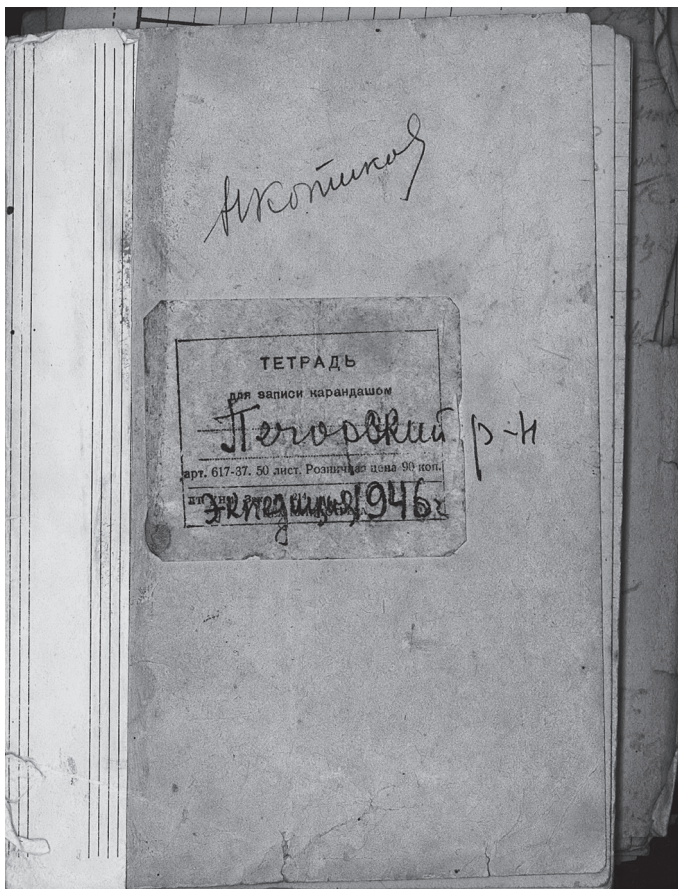 Нкотиков
ТЕТРАДЬ
для записи карандашом
Печорский р-н
арт. 617-37. 50 лист. Розничная цена 90 коп.
Экспедиция 1946г